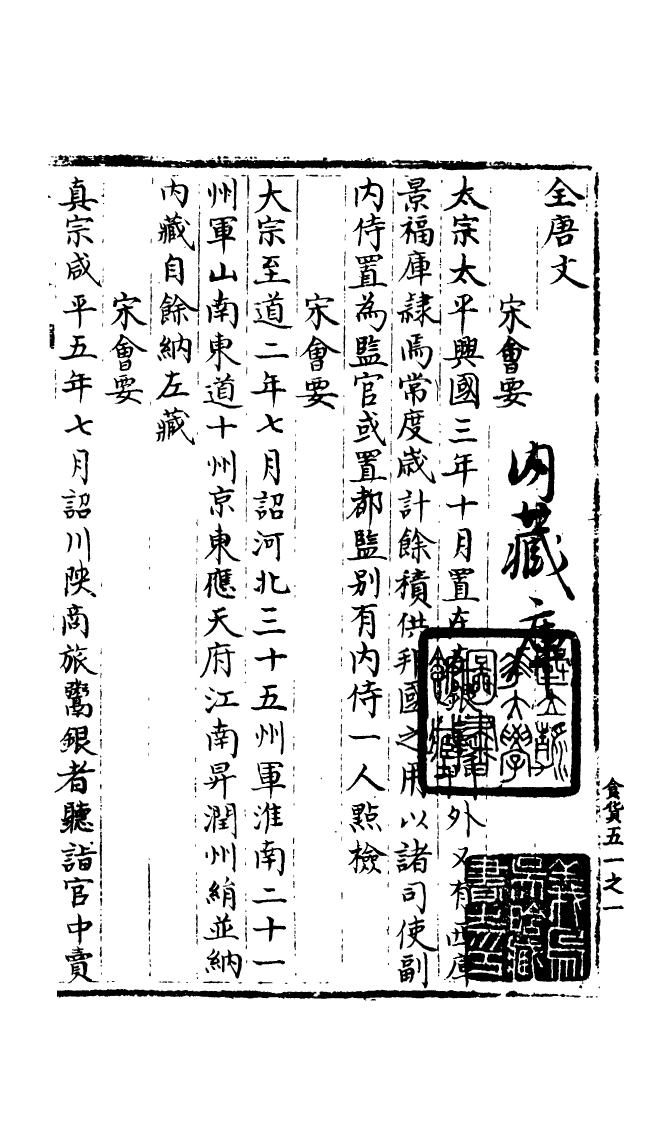 全唐文
宋會要
内藏庫
太宗太平興國三年十月置在 銀 外又有西庫
景福庫隷焉常度歲計餘積供邦國之用以諸司使副
内侍置為監官或置都監别有内侍一人點檢
宋會要
大宗至道二年七月詔河北三十五州軍淮南二十一
州軍山南東道十州京東應天府江南昇潤州絹並納
内藏自餘納左藏
宋會要
真宗咸平五年七月詔川陝商旅鬻銀者聽詣官中賣
食货五一之一